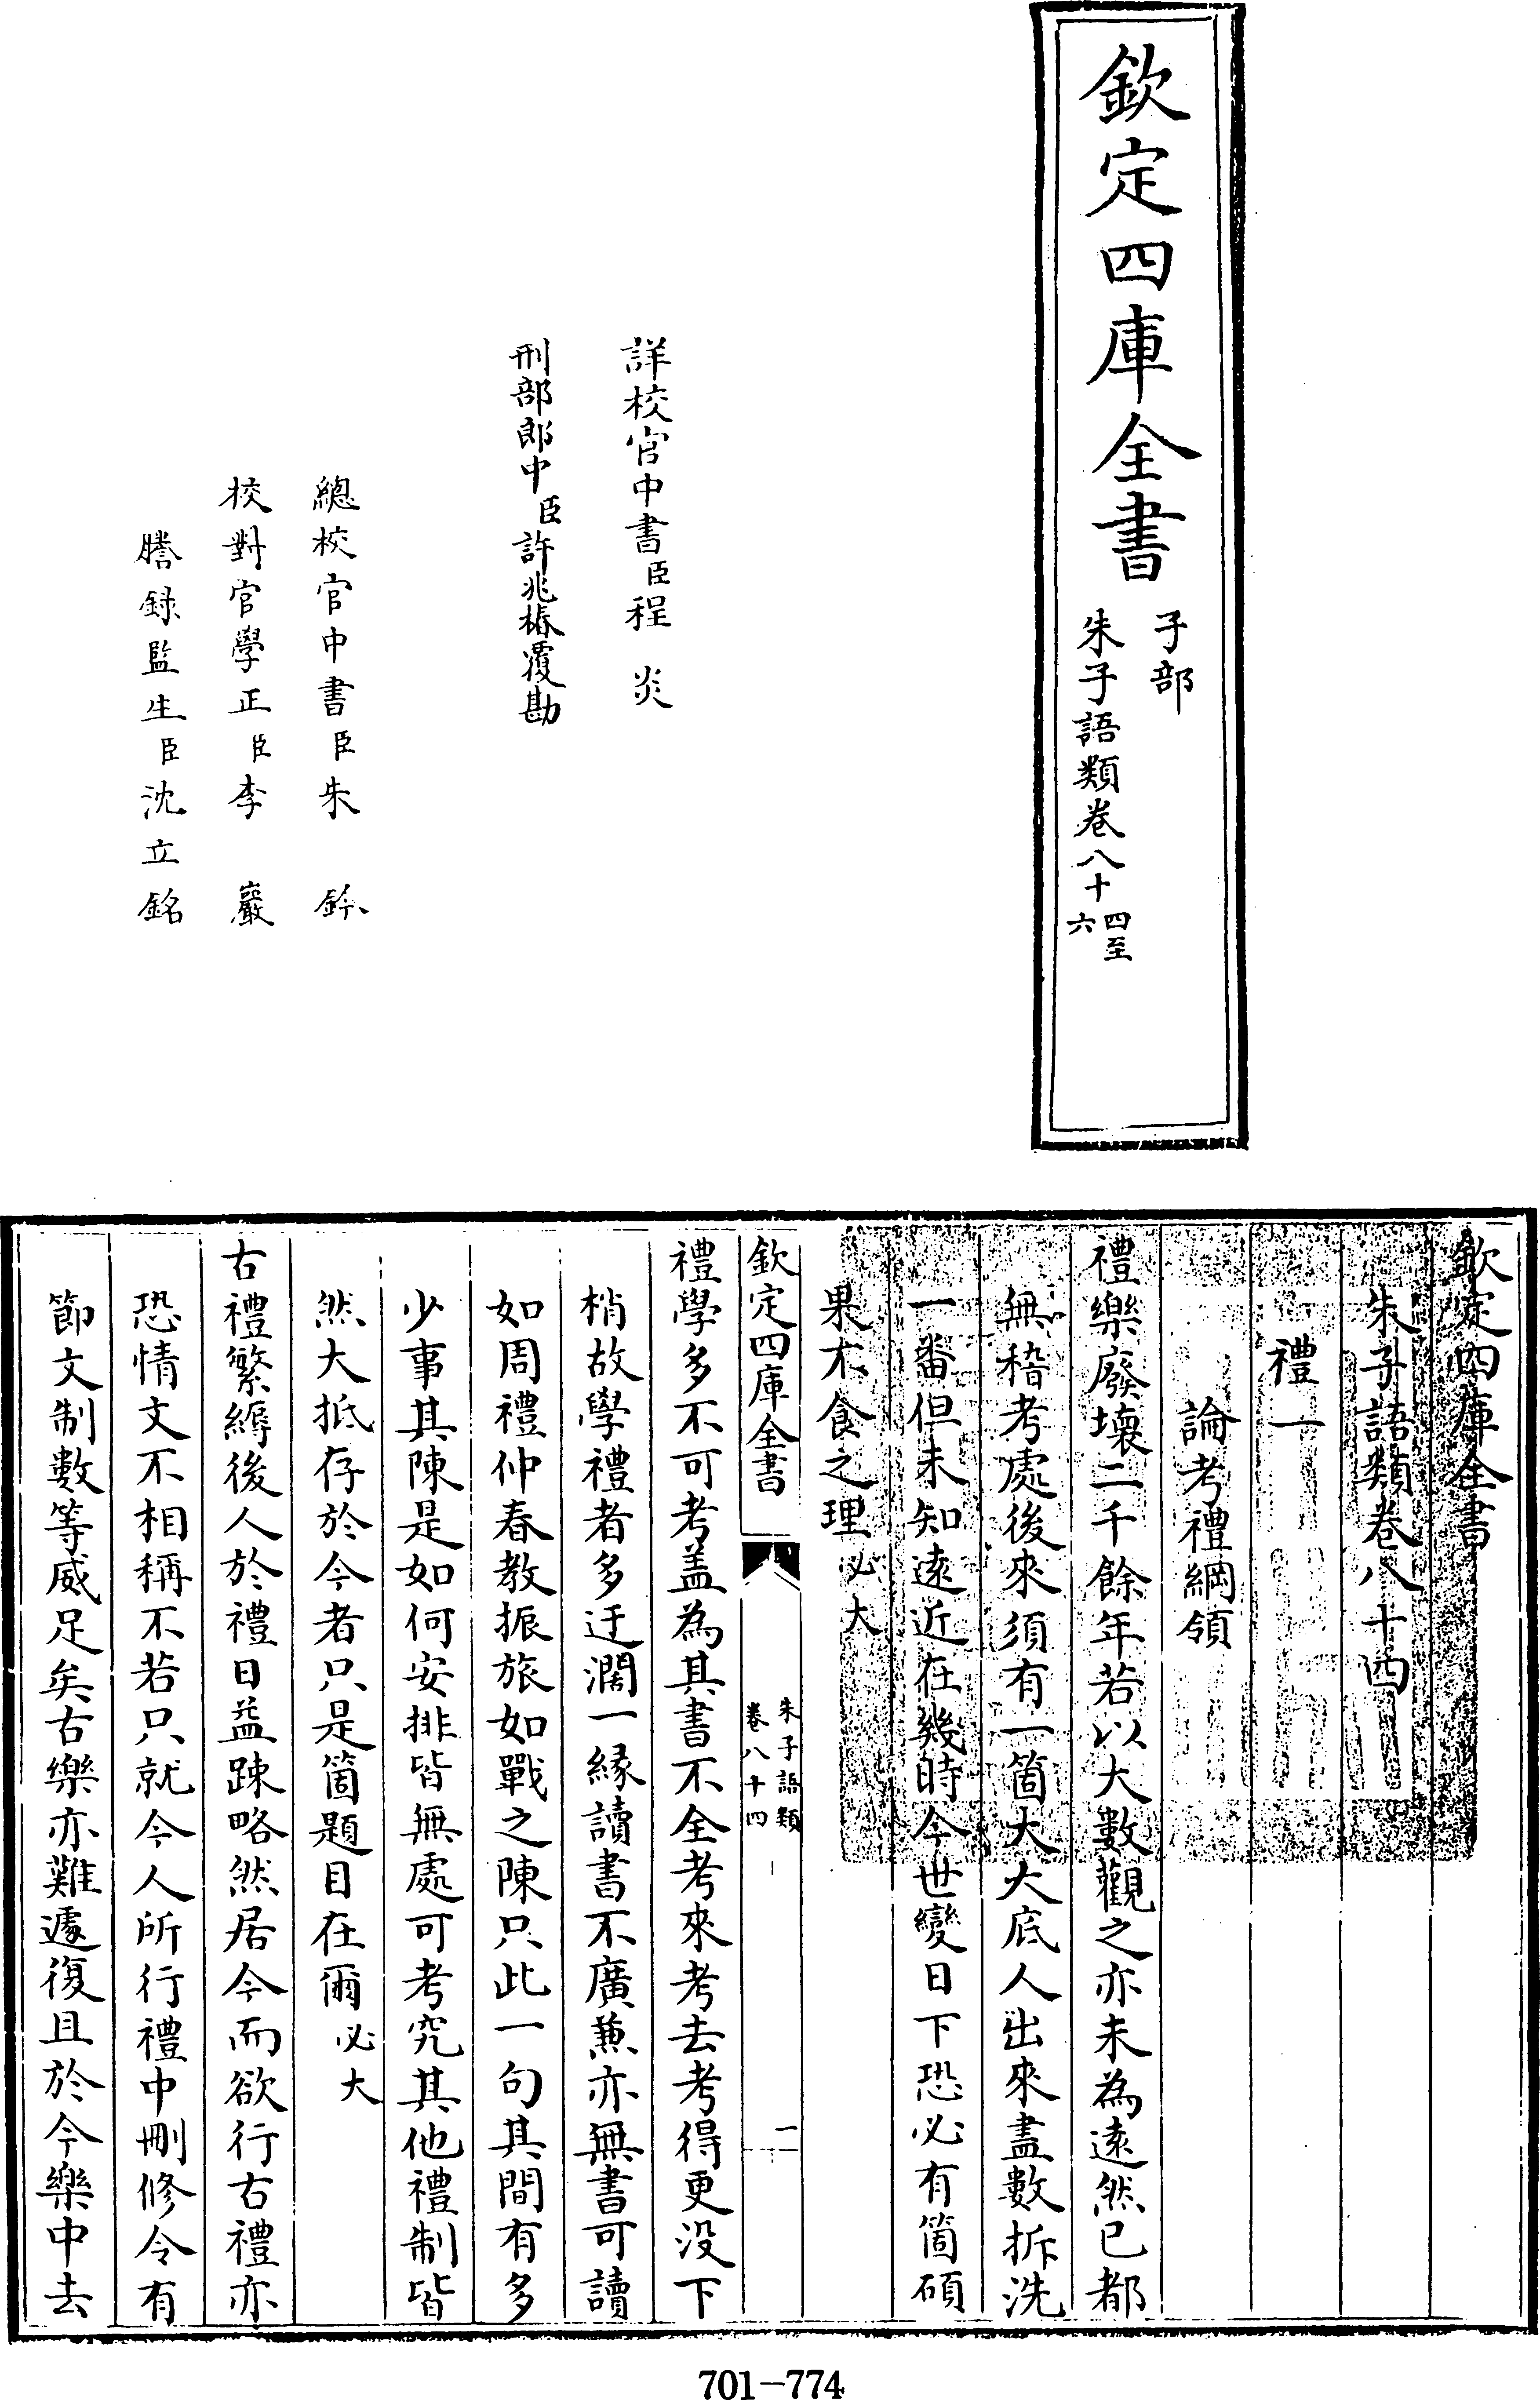 欽定四庫全書
子部
朱子語類卷八十四至六
詳校官中書臣程炎
刑部郎中臣許兆椿覆勘
總校官中書臣朱鈐
校對官學正臣李巖
謄錄監生臣沈立銘
欽定四庫全書
朱子語類卷八十四
禮一
論考禮綱領
禮樂廢壞二千餘年若以大數觀之亦未為遠然已都
無稽考處後來須有一箇大大底人出來盡數拆洗
一番但未知遠近在幾時今世變日下恐必有箇碩
果不食之理必大
欽定四庫全書
朱子語類
卷八十四
一
禮學多不可考盖為其書不全考來考去考得更没下
梢故學禮者多迂濶一緣讀書不廣兼亦無書可讀
如周禮仲春教振旅如戰之陳只此一句其間有多
少事其陳是如何安排皆無處可考究其他禮制皆
然大抵存於今者只是箇題目在爾必大
古禮繁縟後人於禮日益踈略然居今而欲行古禮亦
恐情文不相稱不若只就今人所行禮中刪修令有
節文制數等威足矣古樂亦難遽復且於今樂中去
701-774